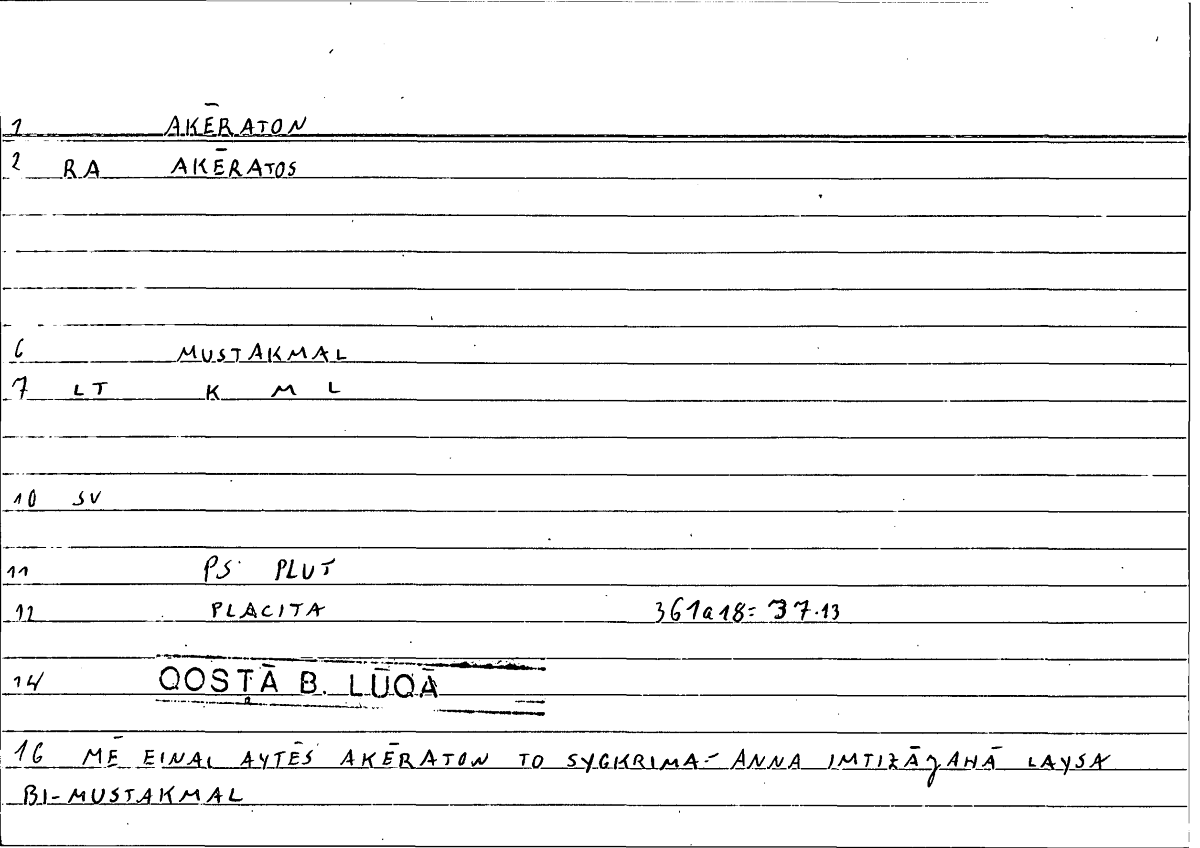 1 AKĒRATON
2 RA AKĒRATOS
6 MUSTAKMAL
7 LT K M L
10 SV
11 PS PLUT
12 PLACITA 361a18= 37.13
14 QOSṬĀ B. LŪQĀ
16 MĒ EINAI AYTĒS AKĒRATON TO SYGKRIMA = ANNA IMTIZĀǧAHĀ LAYSA
BI-MUSTAKMAL